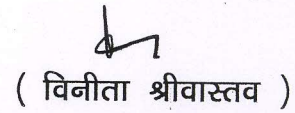 ( विनीता श्रीवास्तव )